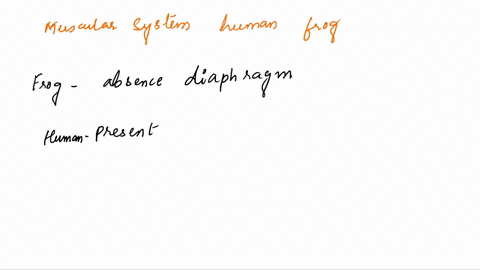 Muscular System human frog
Frog - absence diaphragm
Human - Present